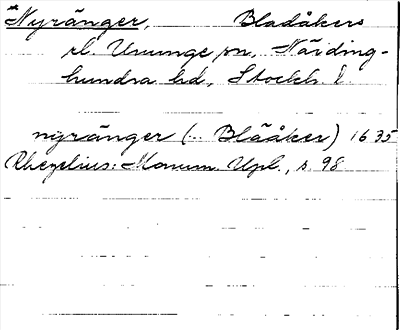 Nyränger, Bladåkers
el. Ununge sn, Närding-
hundra hd, Stockh. l.
nyränger (.. Blååker) 1635
Rhezelius: Monum. Upl., s. 98